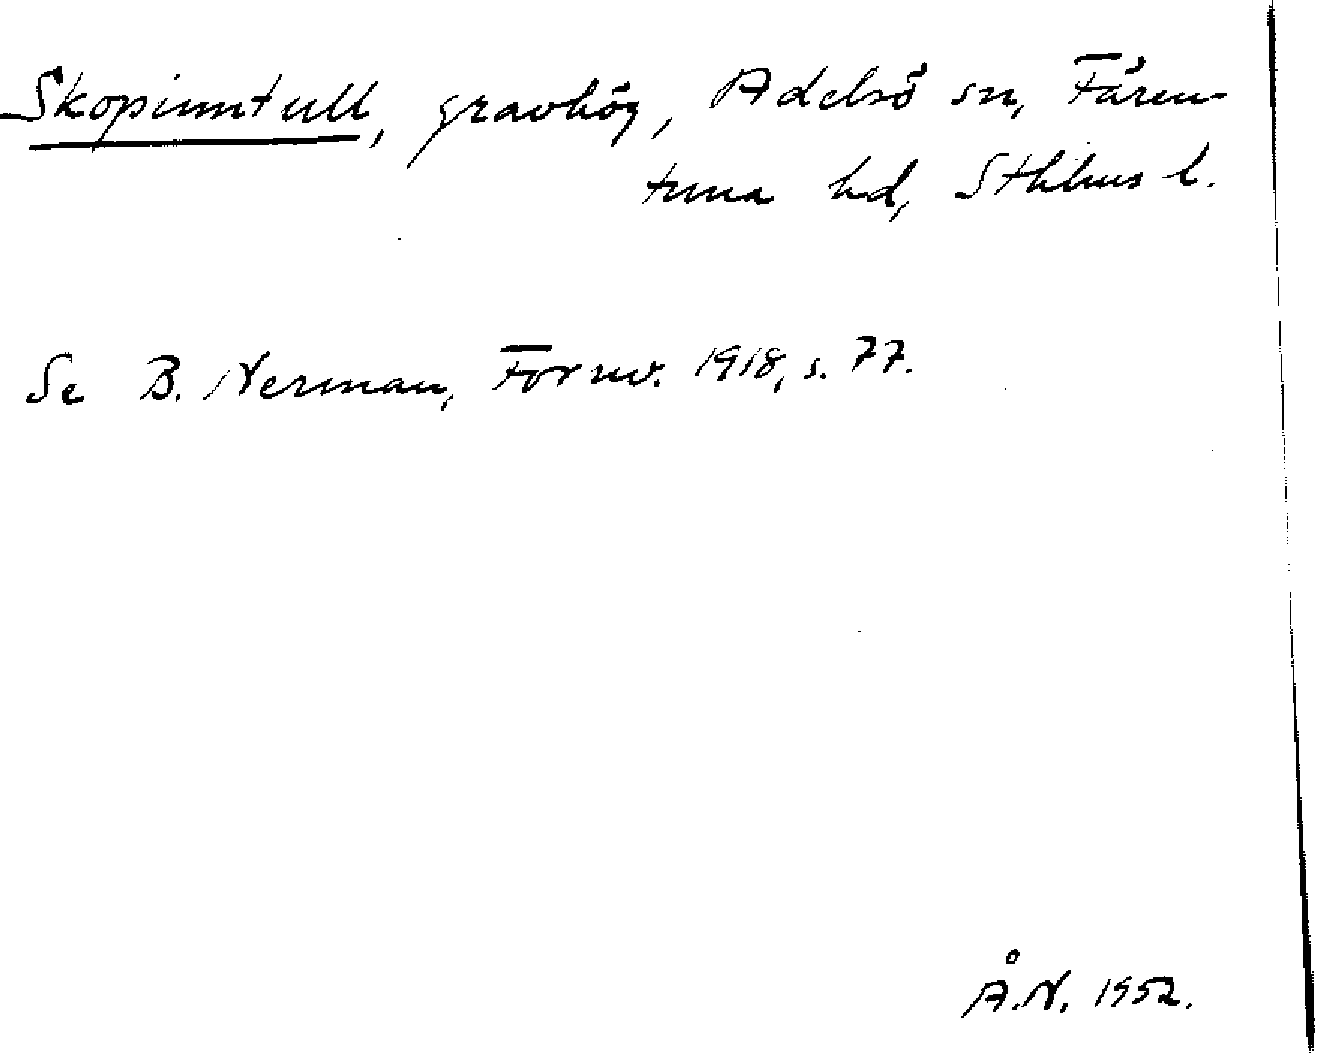 Skopinntull, gravhög, Adelsö sn, Fären-
tuna hd, Sthlms l.
Se B. Nerman, Fornv. 1918, s. 77.
Å.N. 1952.